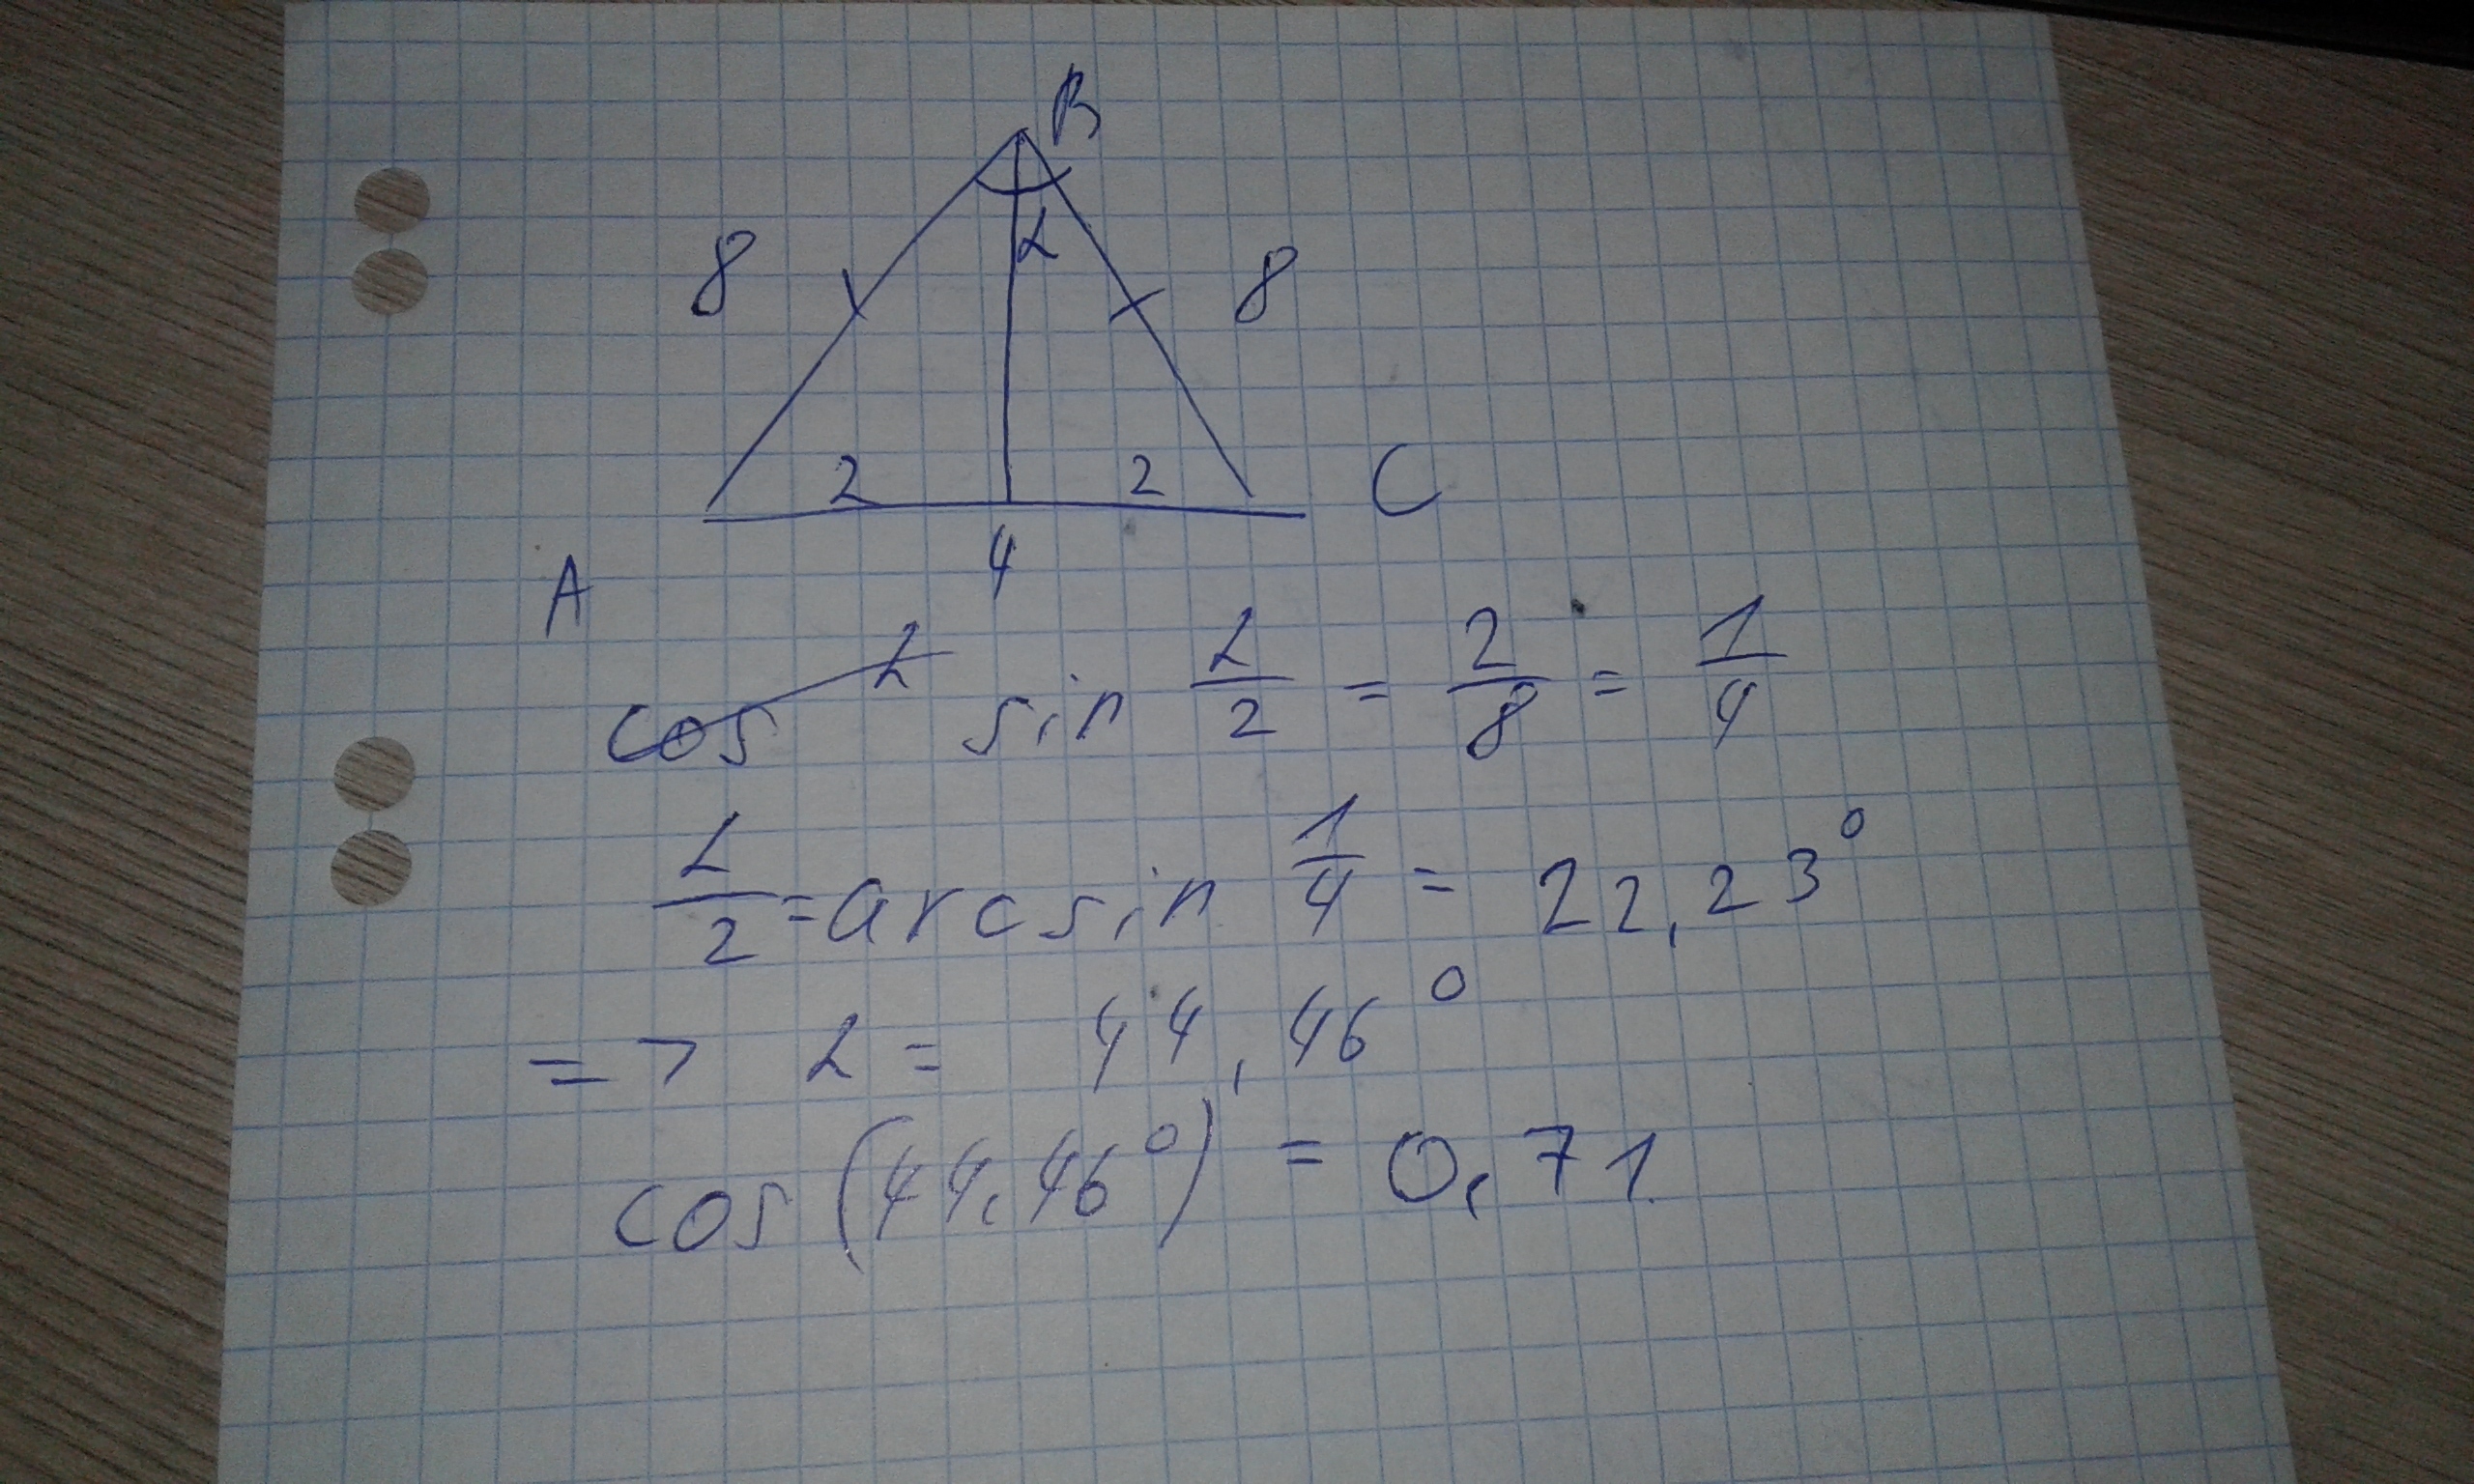 B
8 α 8
2 2 C
4
A
cos α sin α/2 = 2/8 = 1/4
α/2 = arcsin 1/4 = 22,23°
=> α = 44,46°
cos (44,46°) = 0,71